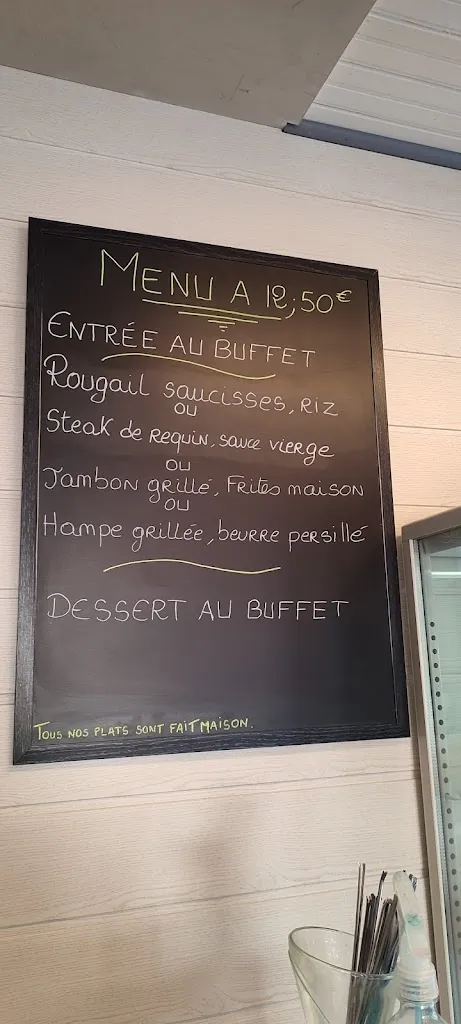 MENU A 12,50€
ENTRÉE AU BUFFET
Rougail saucisses, RIZ
OU
Steak de Requin, sauce vierge
OU
Jambon grillé, Frites maison
OU
Hampe grillée, beurre persillé
DESSERT AU BUFFET
TOUS NOS PLATS SONT FAIT MAISON.